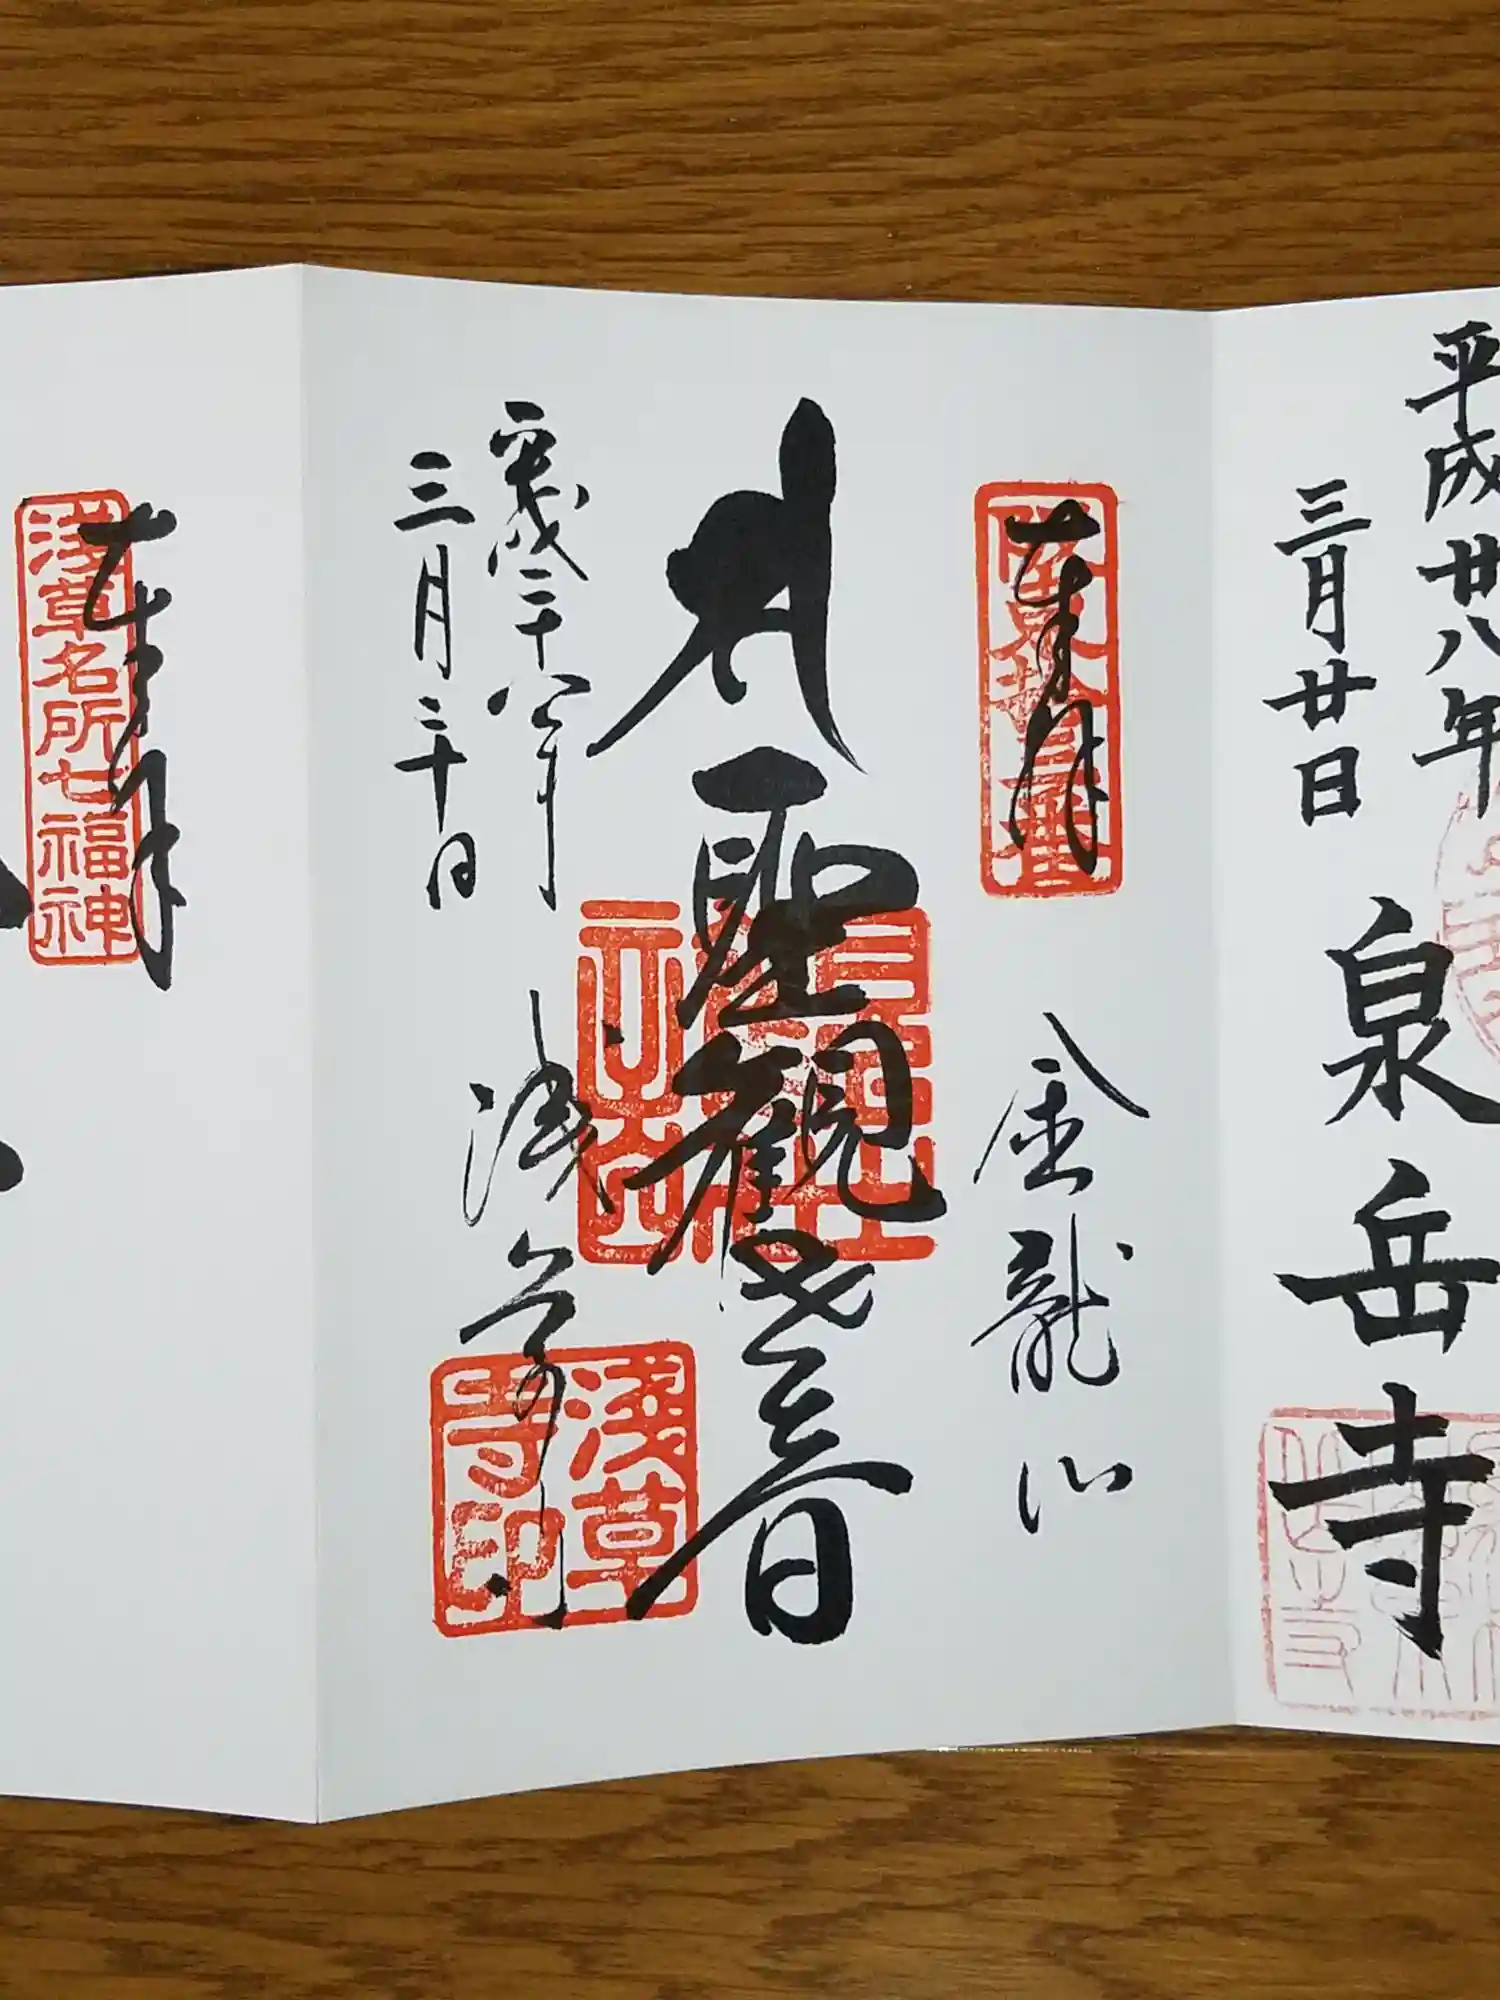 平成廿八年
三月廿日
泉岳寺
奉拝
坂東拾三番
金龍山
聖観世音
平成二十八年
三月二十日
浅草寺
浅草寺印
奉拝
浅草名所七福神